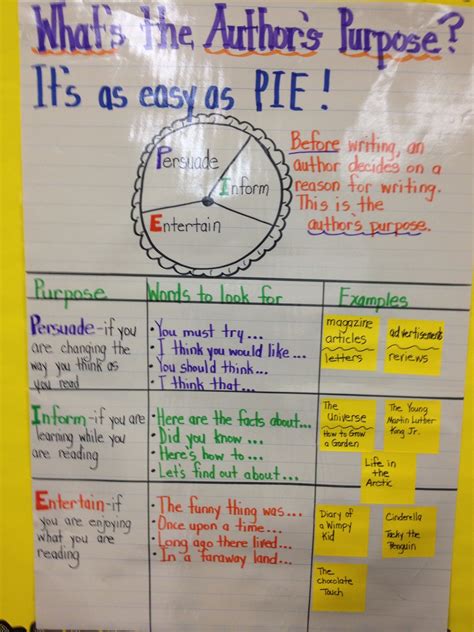 What's the Author's Purpose?
It's as easy as PIE!
Persuade
Inform
Entertain
Before writing, an
author decides on a
reason for writing.
This is the
author's purpose.
Purpose
Words to look for
Examples
Persuade-if you
are changing the
way you think as
you read
• You must try...
• I think you would like...
• You should think...
• I think that...
magazine
articles
letters
advertisements
reviews
Inform-if you are
learning while you
are reading
• Here are the facts about...
• Did you know...
• Here's how to...
• Let's find out about...
The
Universe
How to Grow
a Garden
The Young
Martin Luther
King Jr.
Life in
the
Arctic
Entertain-if
you are enjoying
what you are
reading
• The funny thing was...
• Once upon a time...
• Long ago there lived...
• In a faraway land...
Diary of
a Wimpy
Kid
Cinderella
Tacky the
Penguin
The
Chocolate
Touch